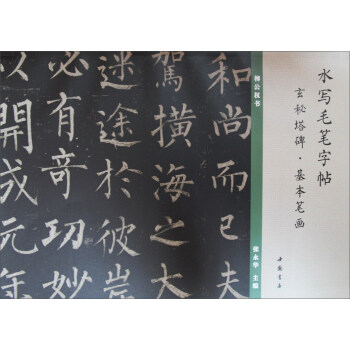 水写毛笔字帖
玄秘塔碑·基本笔画
中國書店
柳公权书
张永华 主编
和尚而已夫
駕橫海之大
迷途於彼岸
必有奇功妙
以開成元年